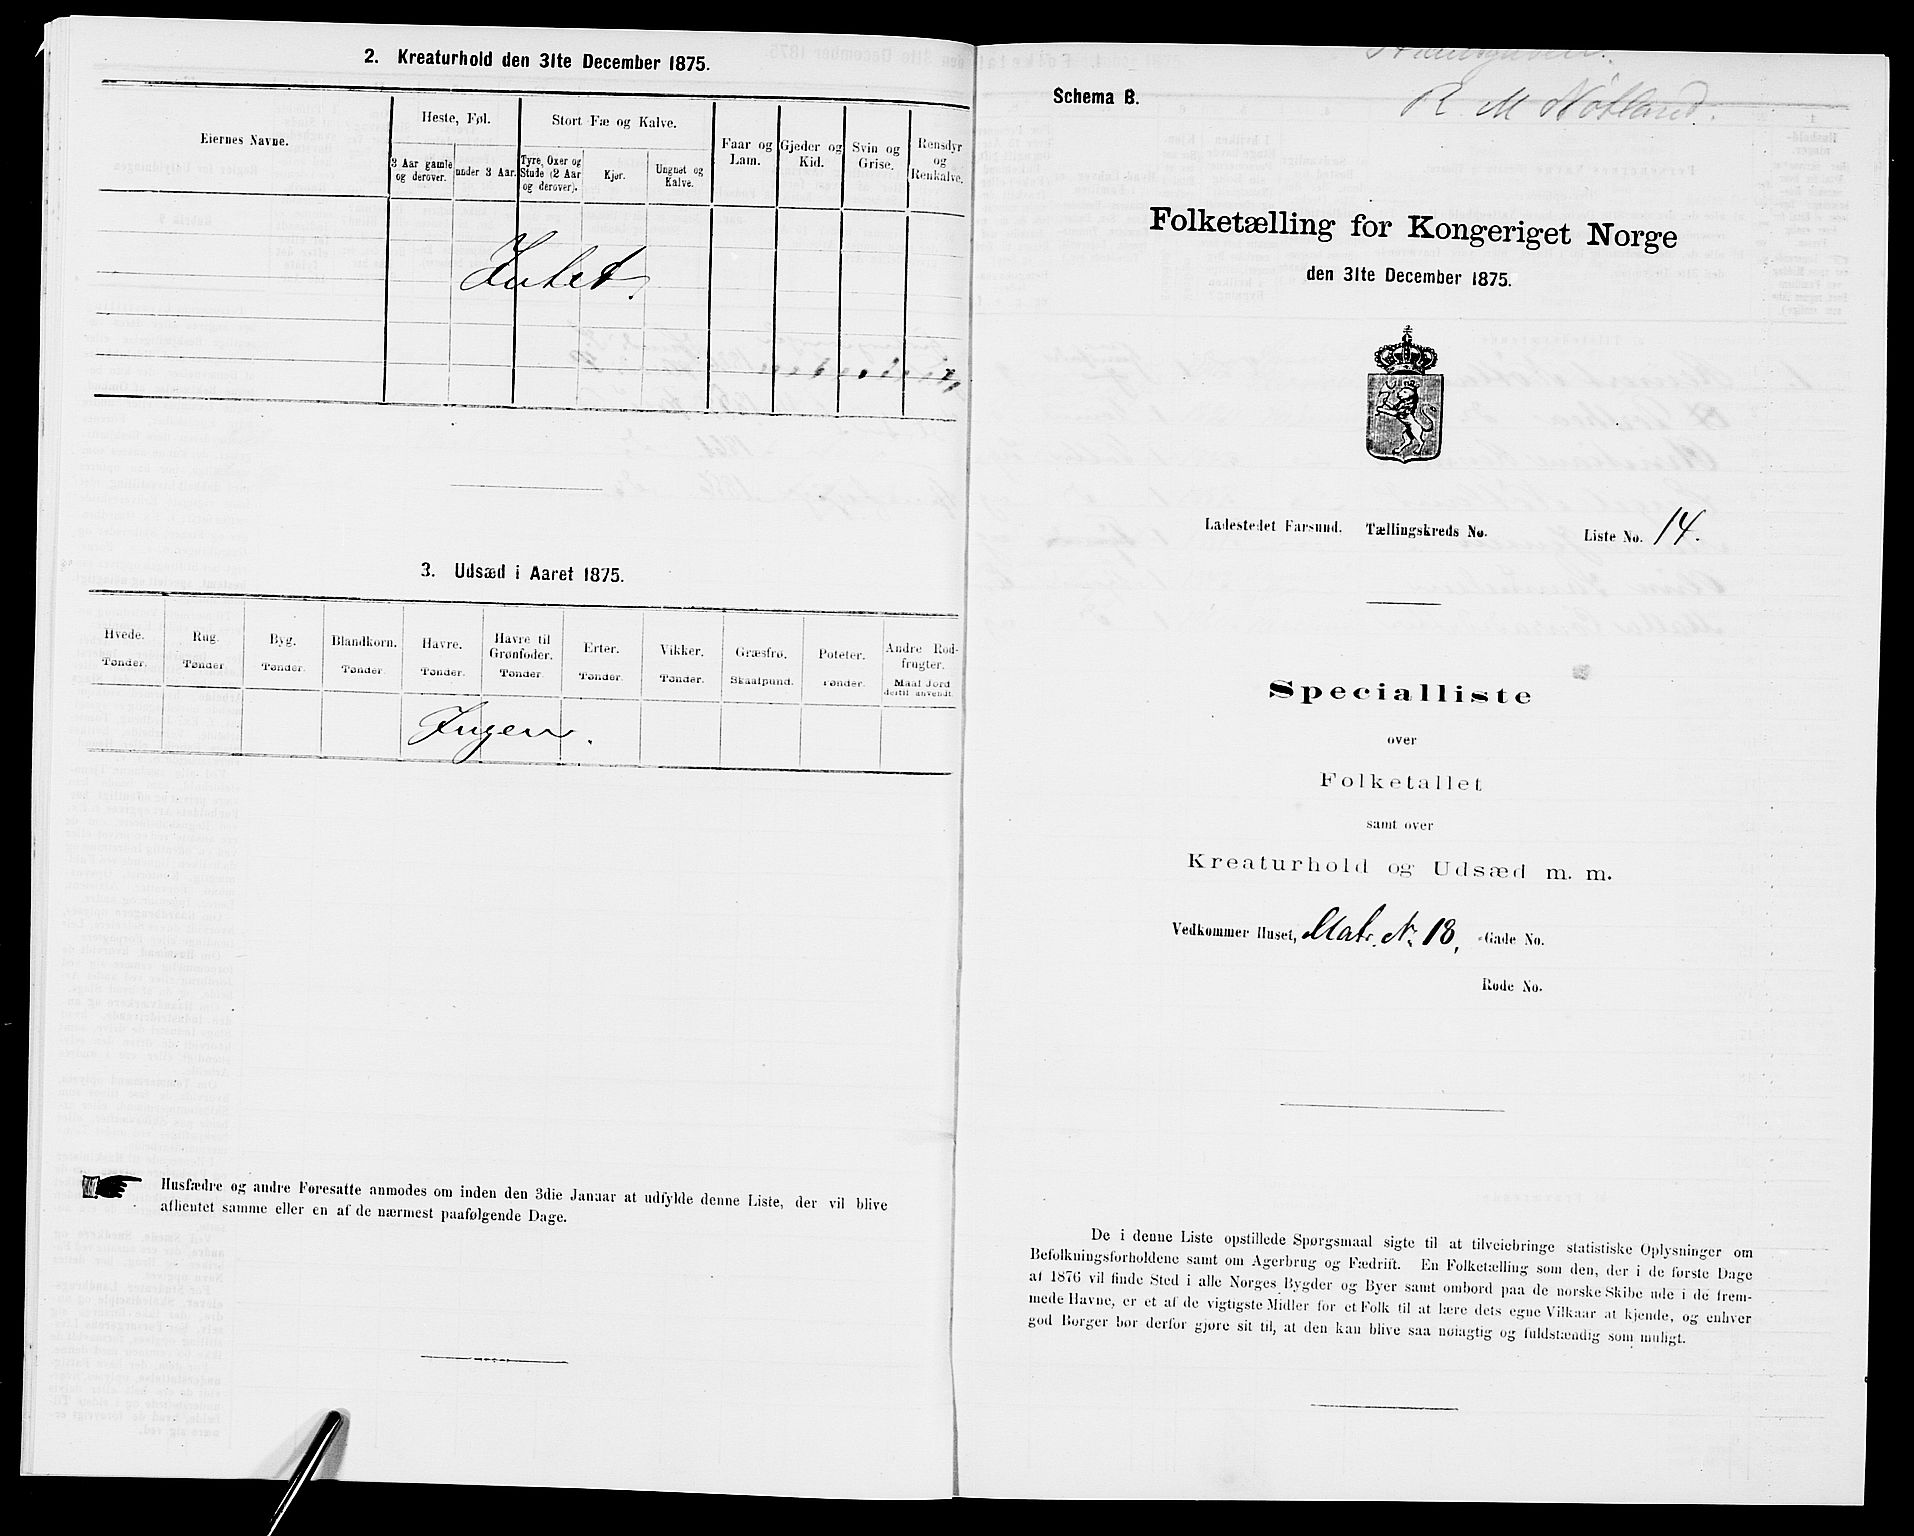 2. Kreaturhold den 31te December 1875.
Eiernes Navne.
Heste, Føl.
Stort Fæ og Kalve.
Faar og Lam.
Gjeder og Kid.
Svin og Grise.
Rensdyr og Renkalve.
3 Aar gamle og derover.
under 3 Aar.
Tyre, Oxer og Stude (2 Aar og derover).
Kjør.
Ungnøt og Kalve.
Intet.
3. Udsæd i Aaret 1875.
Hvede.
Rug.
Byg.
Blandkorn.
Havre.
Havre til Grønfoder.
Erter.
Vikker.
Græsfrø.
Poteter.
Andre Rodfrugter.
Tønder.
Tønder
Tønder.
Tønder.
Tønder.
Tønder.
Tønder.
Tønder.
Skaalpund.
Tønder.
Maal Jord dertil anvendt.
Ingen.
Husfædre og andre Foresatte anmodes om inden den 3die Januar at udfylde denne Liste, der vil blive
afhentet samme eller en af de nærmest paafølgende Dage.
Schema B.
R. M Nøtland.
Folketælling for Kongeriget Norge
den 31te December 1875.
Ladestedet Farsund. Tællingskreds No. Liste No. 14.
Specialliste
over
Folketallet
samt over
Kreaturhold og Udsæd m. m.
Vedkommer Huset, Matr. No 18, -Gade No.
Rode No.
De i denne Liste opstillede Spørgsmaal sigte til at tilveiebringe statistiske Oplysninger om
Befolkningsforholdene samt om Agerbrug og Fædrift. En Folketælling som den, der i de første Dage
af 1876 vil finde Sted i alle Norges Bygder og Byer samt ombord paa de norske Skibe ude i de frem-
mede Havne, er et af de vigtigste Midler for et Folk til at lære dets egne Vilkaar at kjende, og enhver
god Borger bør derfor gjøre sit til, at den kan blive saa nøiagtig og fuldstændig som muligt.